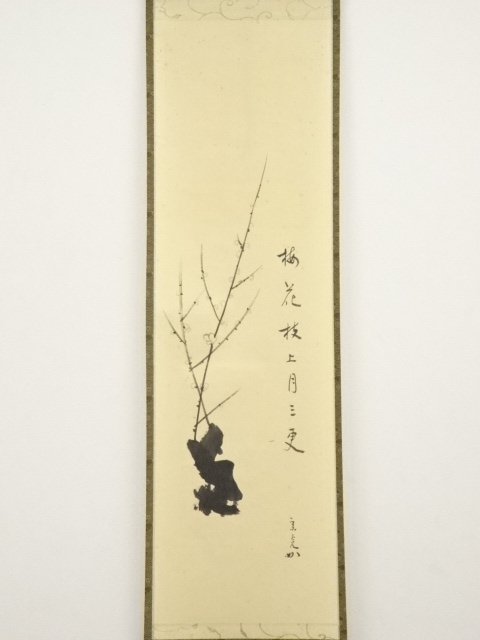 梅花枝上月三更